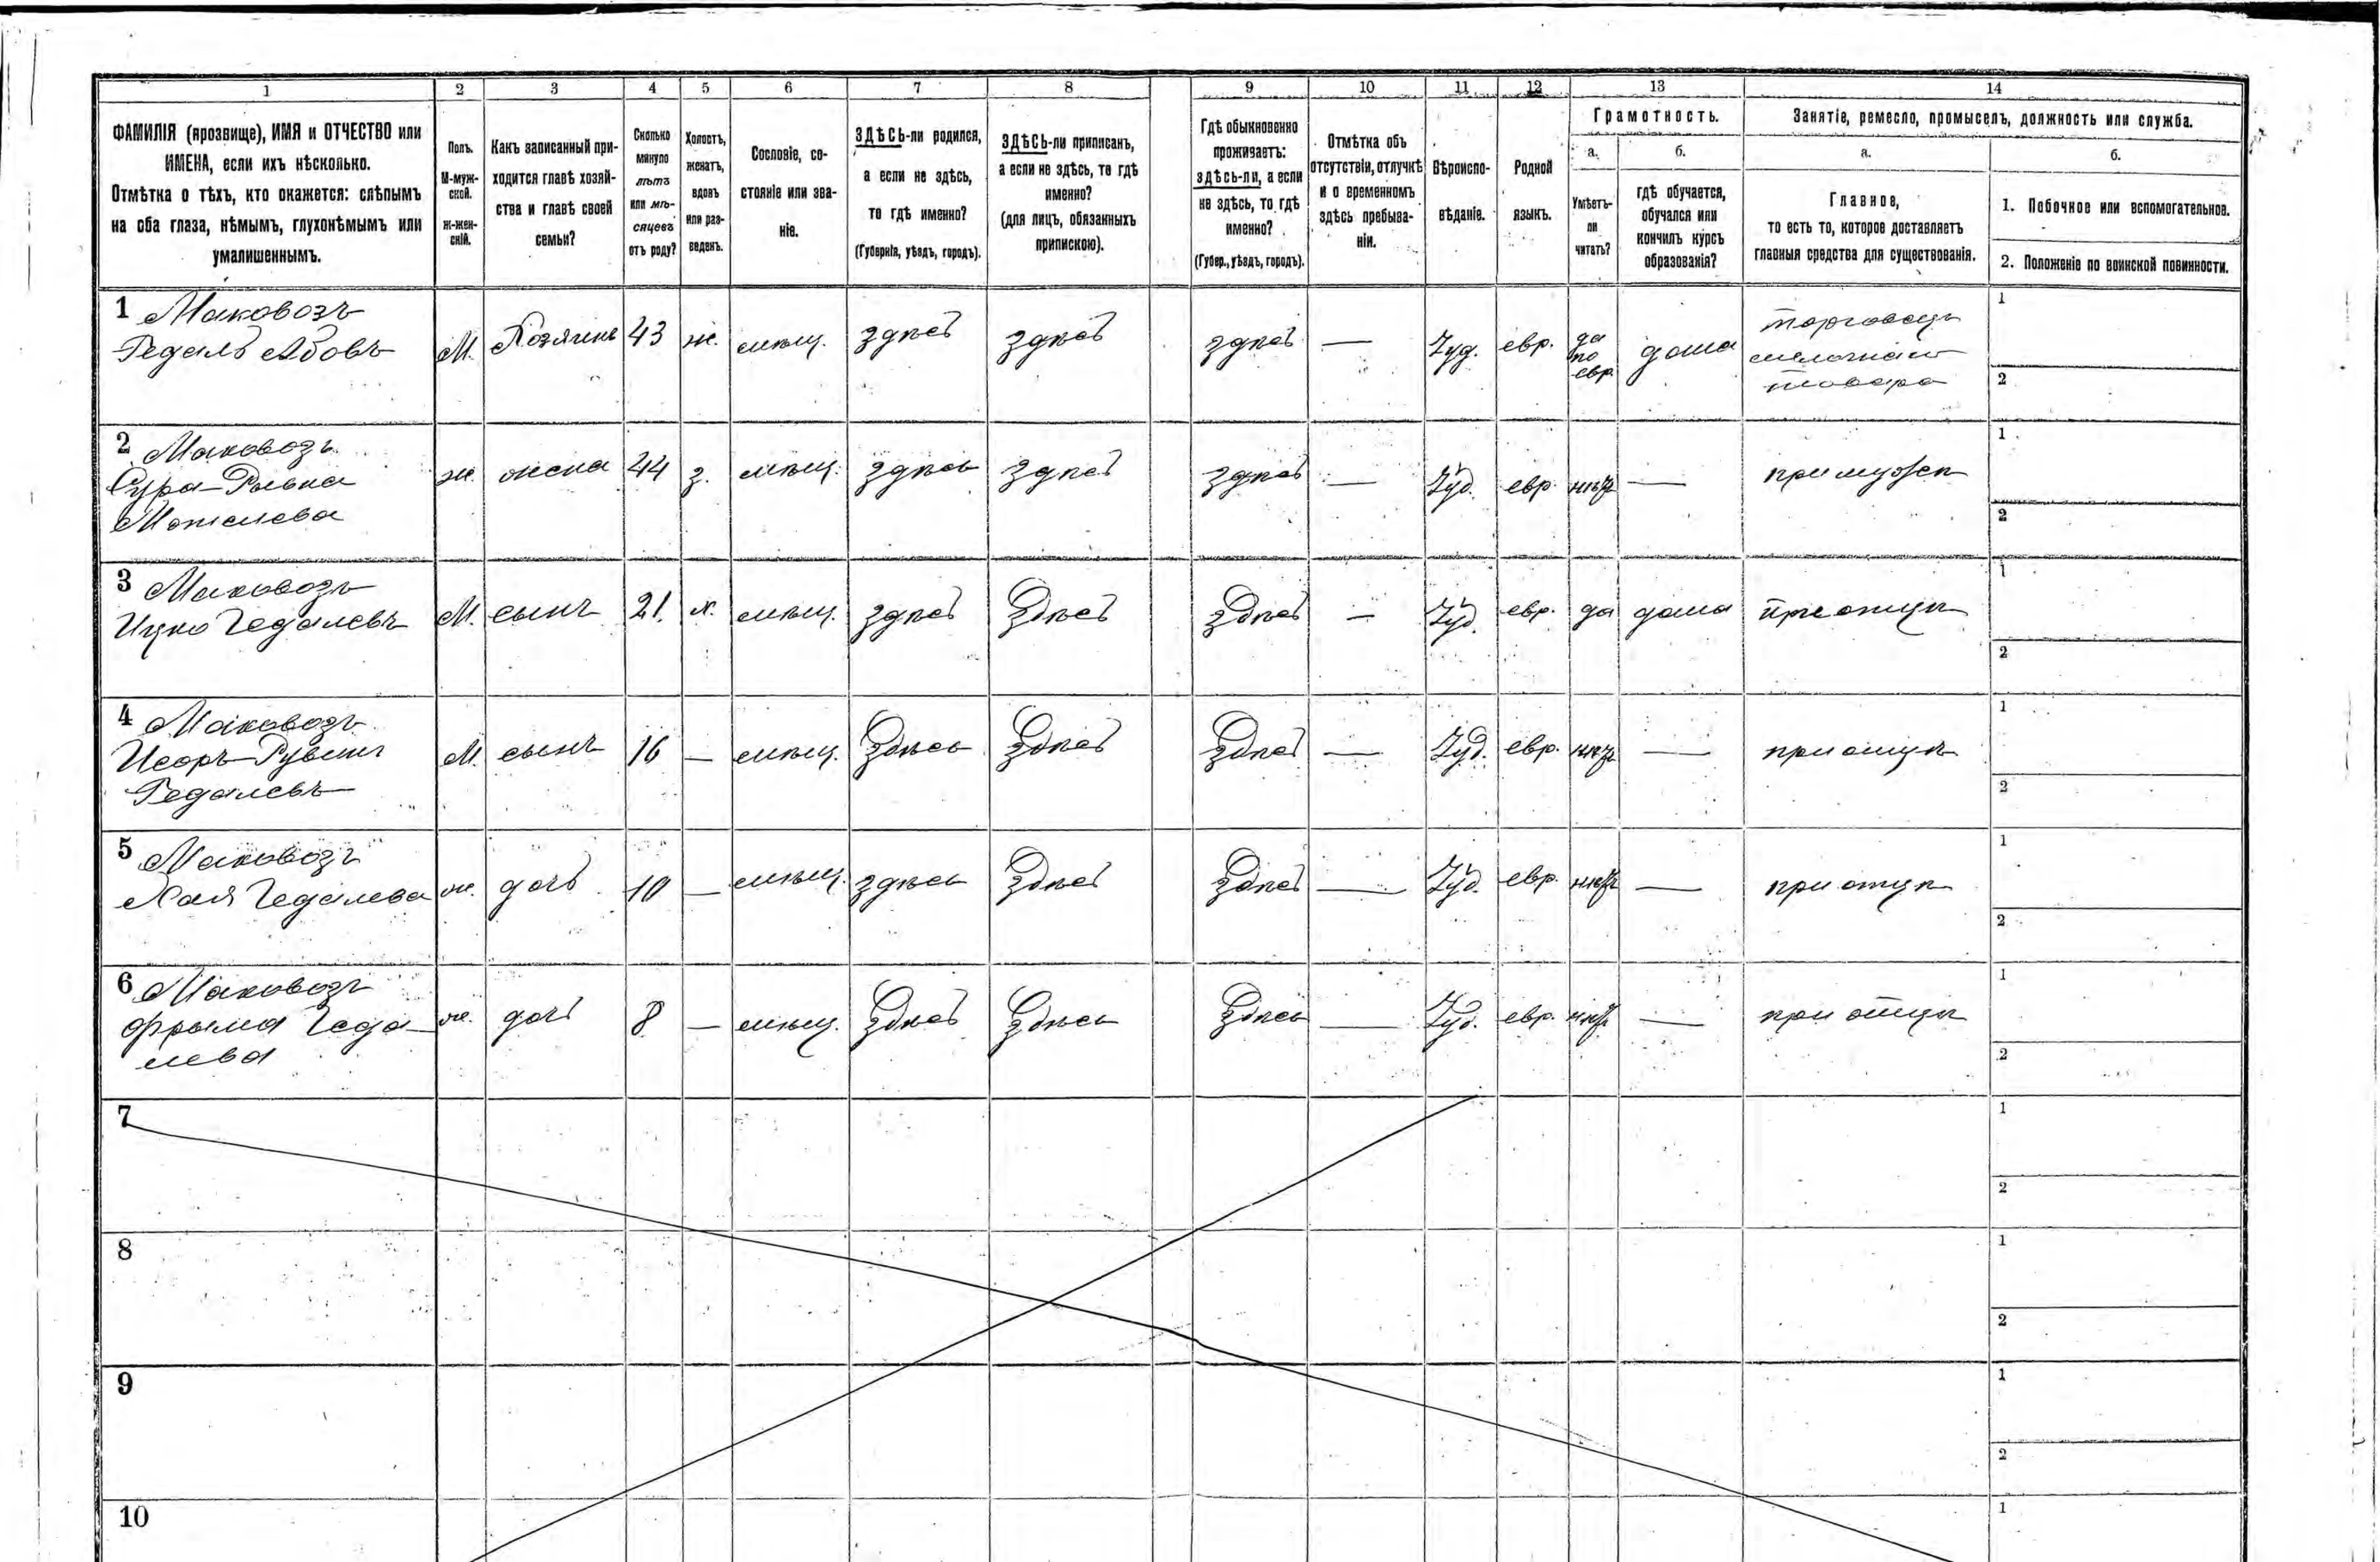 1
2
3
4
5
6
7
8
9
10
11
12
13
14
ФАМИЛІЯ (прозвище), ИМЯ и ОТЧЕСТВО или
ИМЕНА, если ихъ нѣсколько.
Отмѣтка о тѣхъ, кто окажется: слѣпымъ
на оба глаза, нѣмымъ, глухонѣмымъ или
умалишеннымъ.
Полъ.
М-муж-
ской.
Ж-жен-
скій.
Какъ записанный при-
ходится главѣ хозяй-
ства и главѣ своей
семьи?
Сколько
минуло
лѣтъ
или мѣ-
сяцевъ
отъ роду?
Холостъ,
женатъ,
вдовъ
или раз-
веденъ.
Сословіе, со-
стояніе или зва-
ніе.
ЗДѢСЬ-ли родился,
а если не здѣсь,
то гдѣ именно?
(Губернія, уѣздъ, городъ).
ЗДѢСЬ-ли приписанъ,
а если не здѣсь, то гдѣ
именно?
(для лицъ, обязанныхъ
припискою).
Гдѣ обыкновенно
проживаетъ:
здѣсь-ли, а если
не здѣсь, то гдѣ
именно?
(Губер., уѣздъ, городъ).
Отмѣтка объ
отсутствіи, отлучкѣ
и о временномъ
здѣсь пребыва-
ніи.
Вѣроиспо-
вѣданіе.
Родной
языкъ.
Грамотность.
а.
Умѣетъ-
ли
читать?
б.
гдѣ обучается,
обучался или
кончилъ курсъ
образованія?
Занятіе, ремесло, промыселъ, должность или служба.
а.
Главное,
то есть то, которое доставляетъ
главныя средства для существованія.
б.
1. Побочное или вспомогательное.
2. Положеніе по воинской повинности.
1 Маковозъ
Гедаль Абовъ
М. Хозяинъ 43 ж. мѣщ. здѣсь здѣсь здѣсь — Іуд. евр. да
по
евр. дома торговецъ
мелочнаго
товара
1
2
2 Маковозъ
Сура-Рывка
ж. жена 44 з. мѣщ. здѣсь здѣсь здѣсь — Іуд. евр. нѣтъ — при мужѣ
1
2
3 Маковозъ
Ицко Гедалевъ
М. сынъ 21. х. мѣщ. здѣсь Здѣсь Здѣсь — Іуд. евр. да дома при отцѣ
1
2
4 Маковозъ
Гедалевъ
М. сынъ 16 — мѣщ. Здѣсь Здѣсь Здѣсь — Іуд. евр. нѣтъ — при отцѣ
1
2
5 Маковозъ
Хая Гедалева
ж. дочь 10 — мѣщ. здѣсь Здѣсь Здѣсь — Іуд. евр. нѣтъ — при отцѣ
1
2
6 Маковозъ
Фрыма Геда-
лева
ж. дочь 8 — мѣщ. Здѣсь Здѣсь Здѣсь — Іуд. евр. нѣтъ — при отцѣ
1
2
7
1
2
8
1
2
9
1
2
10
1